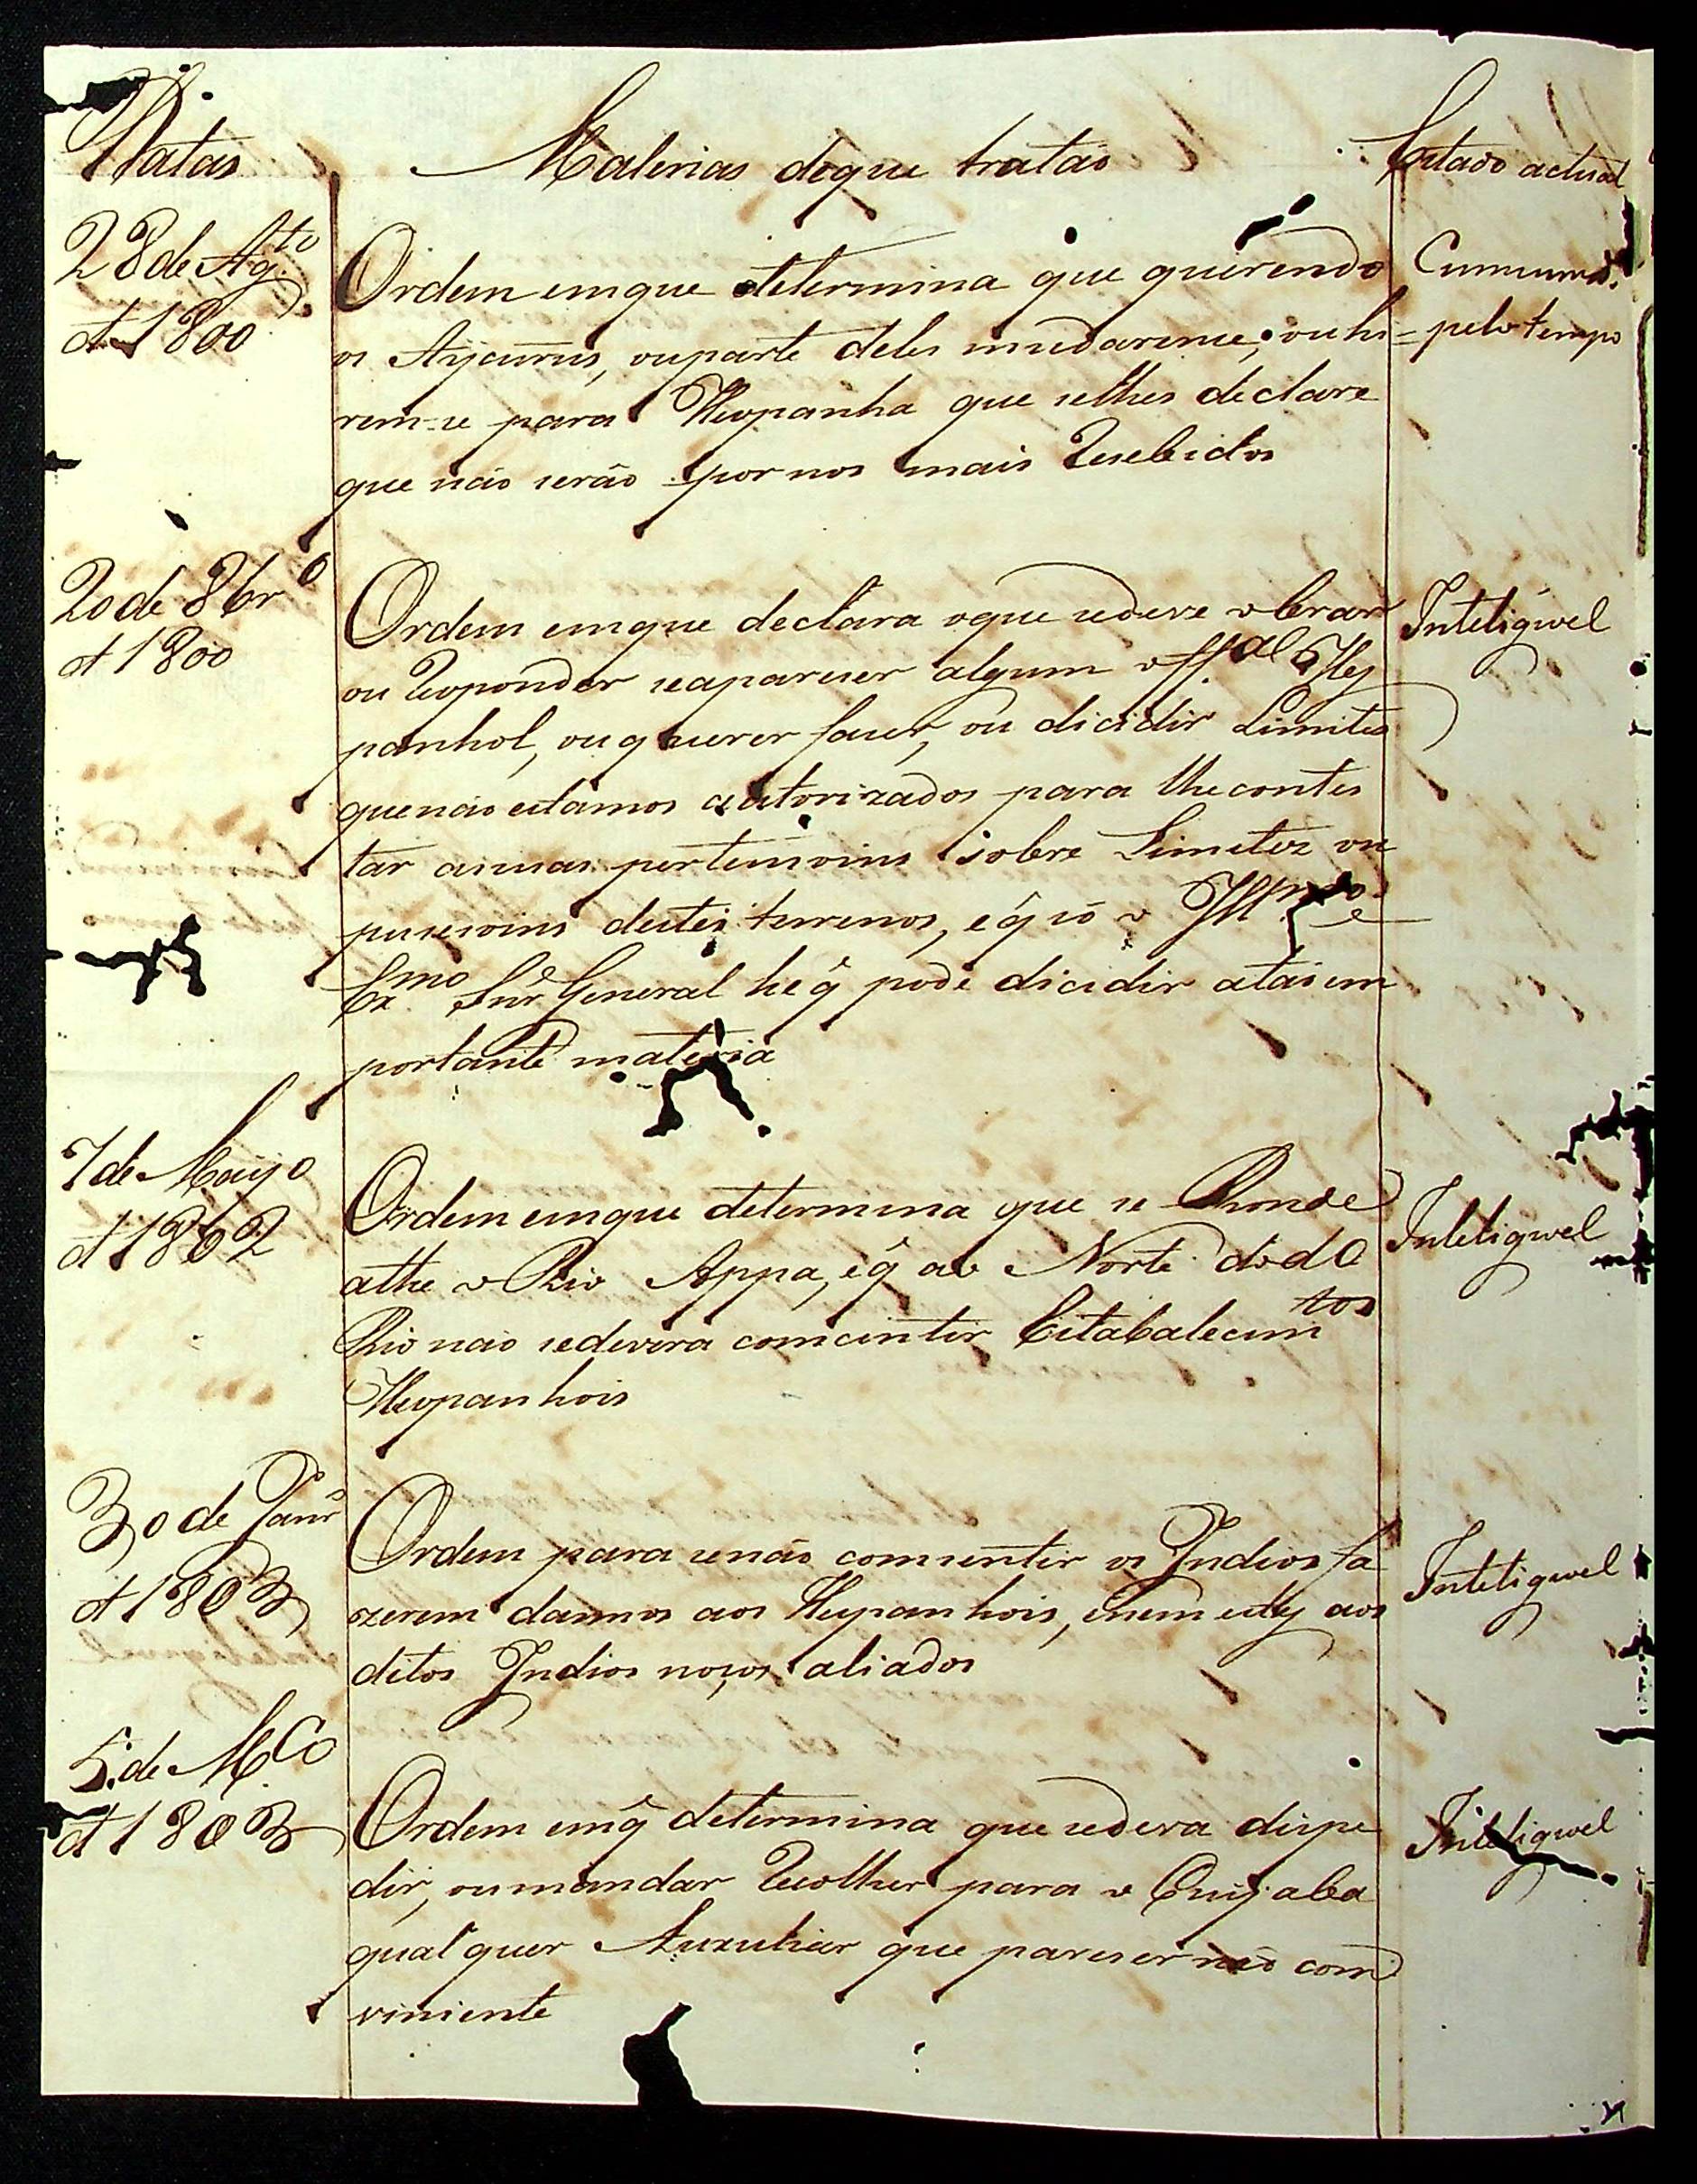 Datas
Materias deque tratão
Estado actual
28 de Ag.to
d 1800
Ordem emque determina que querendo
os Aycurus, ouparte deles mudaremse, ou hi=
rem-se para Hespanha que selhes declare
que não serão por nos mais Resebidos
Cumum.
pelo tempo
20 de 8br.o
d 1800
Ordem emque declara oque sedeve obrar
ou Responder seapareser algum off.al Hes
panhol, ou querer faser, ou dicidir Limites
quenão estamos autorizados para lhecontes
tar asuas pertensoins sobre Limetes ou
pusesoins destes terrenos, eq̃ só o Ill.mo e
Ex.mo Snr̃ General he q̃ pode dicidir atão im
portante materia
Inteligivel
7 de Mayo
d 1802
Ordem emque determina que se Ronde
athe o Rio Appa, eq̃ ao Norte do d.o
Rio não sedevera comcintir Estabalecim.tos
Hespanhois
Inteligivel
30 de Janr.o
d 1803
Ordem para senão comsentir os Indios fa
zerem dannos aos Hespanhois, enem estes aos
ditos Indios nosos aliados
Inteligivel
5 de M.ço
d 1803
Ordem emq̃ determina que sedeva dispe
dir, oumandar Recolher para o Cuyaba
qualquer Auxuliar que pareser não com
viniente
Inteligivel